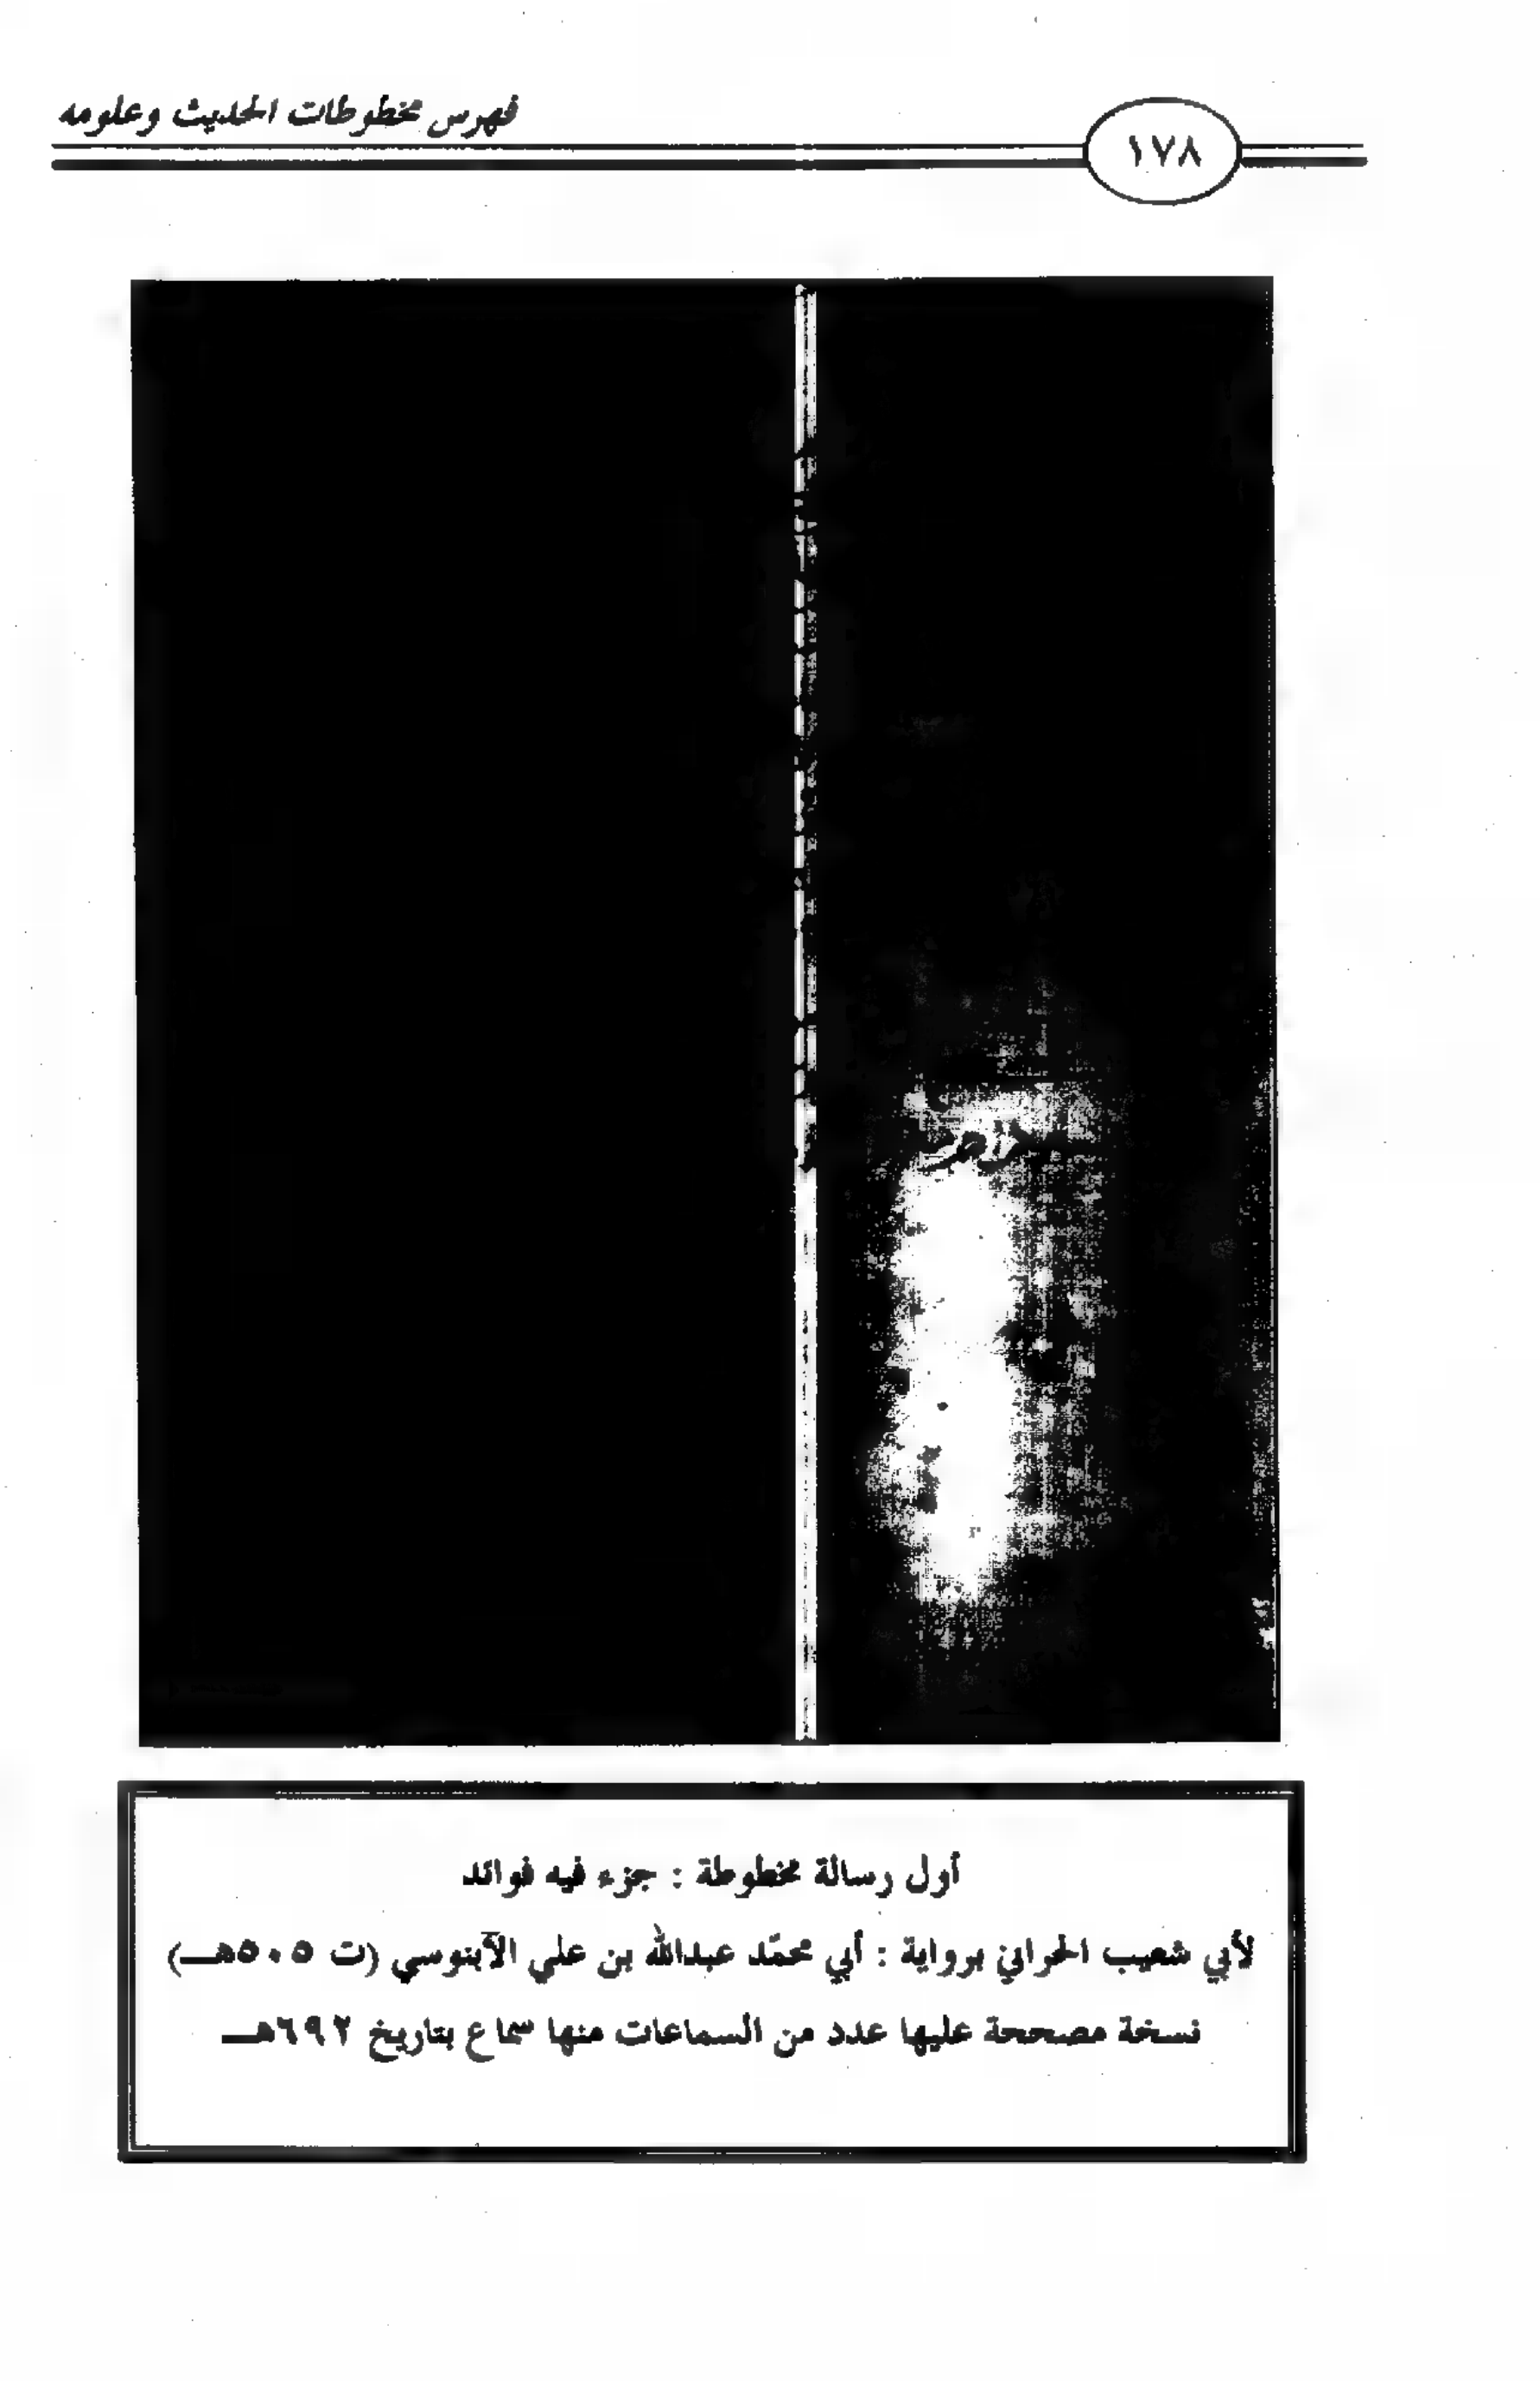 فهرس مخطوطات الحديث وعلومه
١٧٨
أول رسالة مخطوطة : جزء فيه فوائد
لأبي شعيب الحراني برواية : أبي محمّد عبدالله بن علي الآبنوسي (ت ٥٠٥هـ)
نسخة مصححة عليها عدد من السماعات منها سماع بتاريخ ٦٩٢هـ